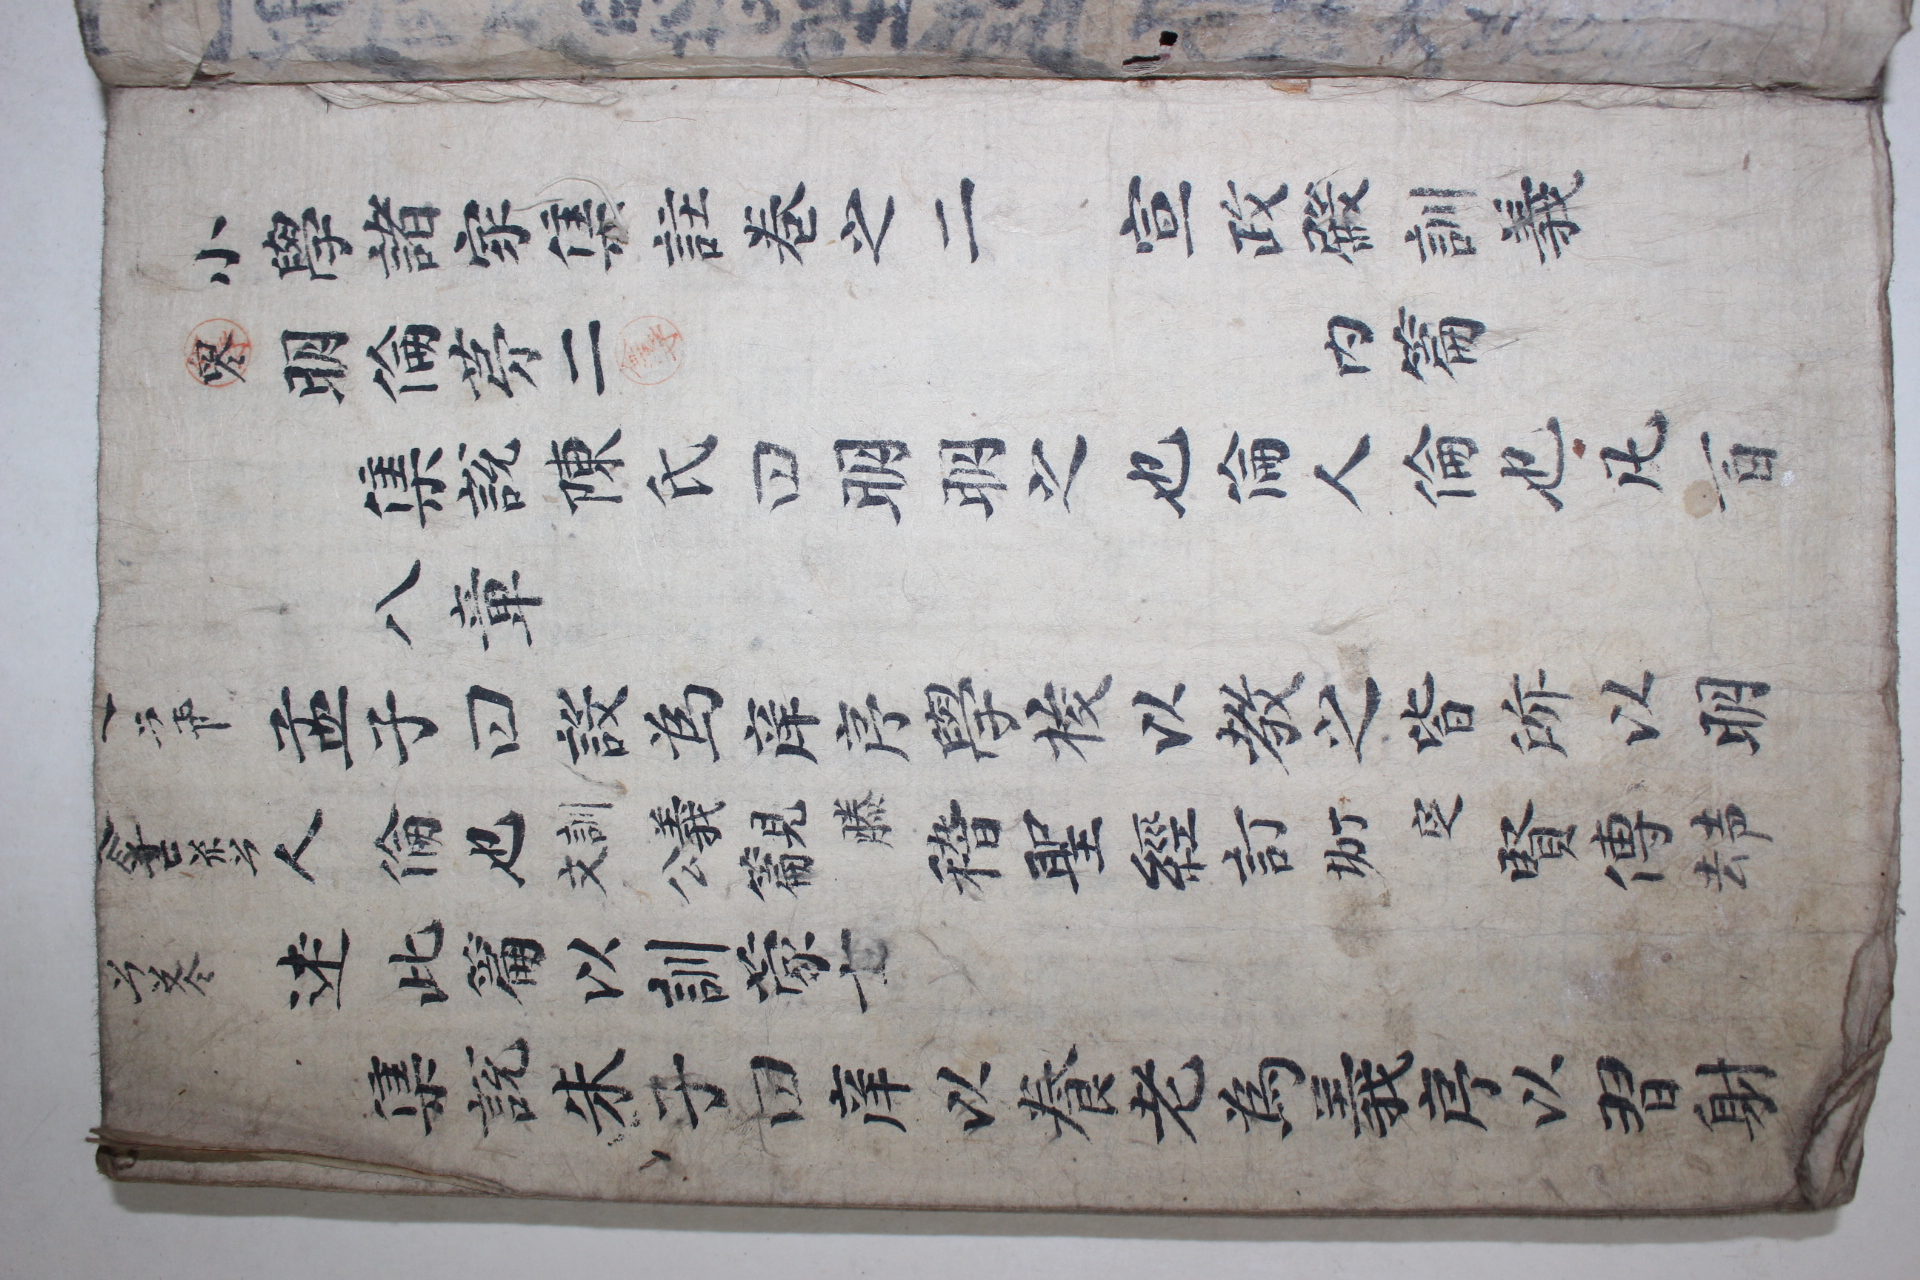 小學諸家集註卷之二 宣政殿訓義
明倫苐二 内篇
集說陳氏曰明明之也倫人倫也凡百
八章
孟子曰設為庠序學校以教之皆所以明
人倫也訓義見滕文公篇稽聖經訂賢傳去声
述此篇以訓蒙士
集說朱子曰庠以養老為義序以習射